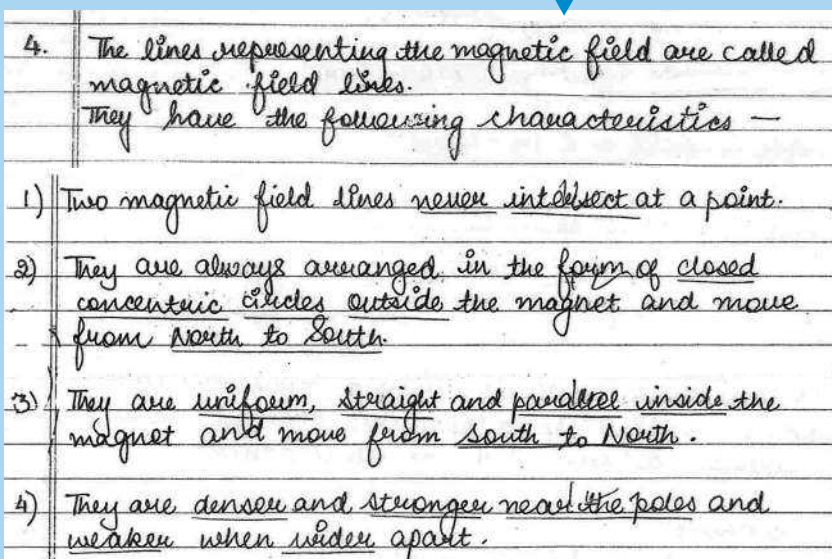 4. The lines representing the magnetic field are called
magnetic field lines.
They have the following characteristics —
1) Two magnetic field lines never intersect at a point.
2) They are always arranged in the form of closed
concentric circles outside the magnet and move
from North to South.
3) They are uniform, straight and parallel inside the
magnet and move from South to North.
4) They are denser and stronger near the poles and
weaker when wider apart.